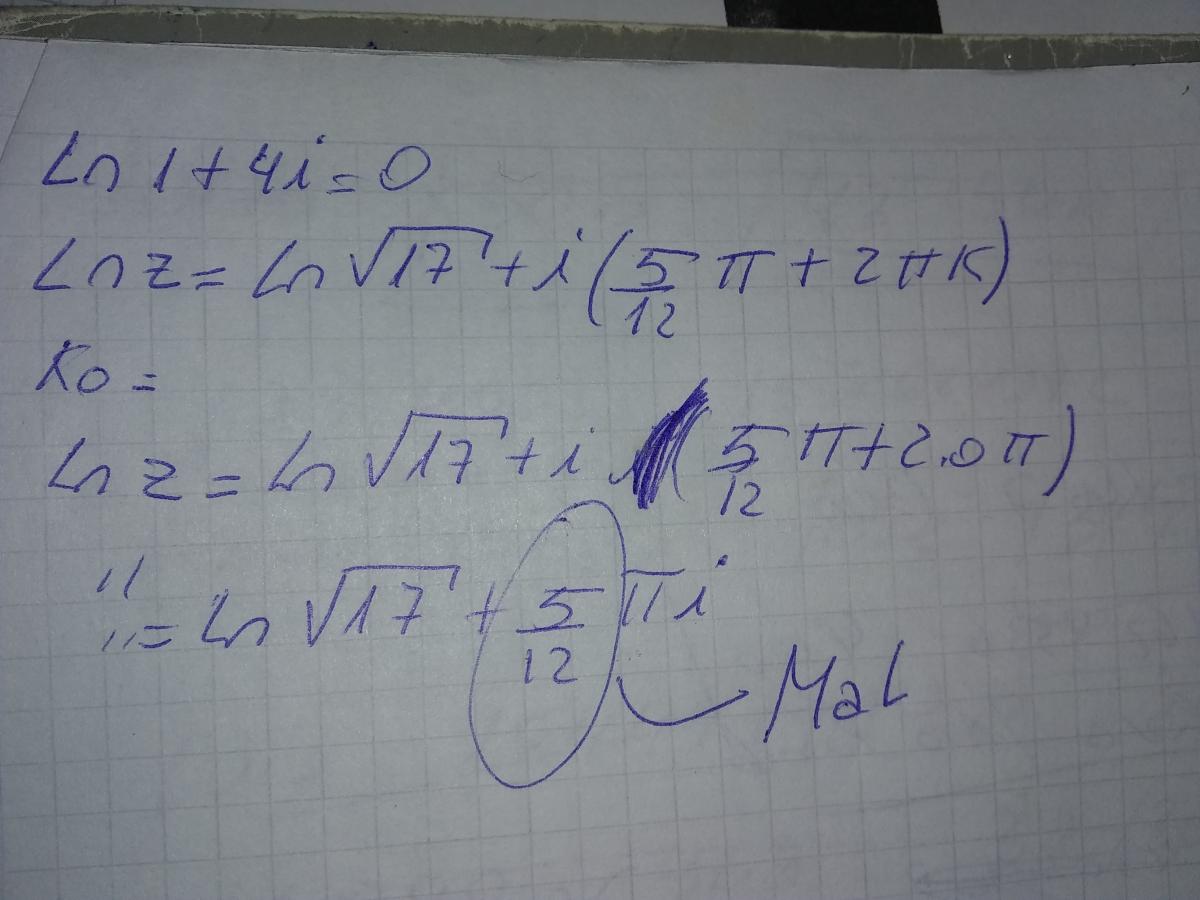 Ln 1+4i=0
Ln z = Ln √17 + i (5/12 π + 2πK)
K0 =
Ln z = Ln √17 + i (5/12 π+2.0π)
"
"= Ln √17 + 5/12 πi
Mal